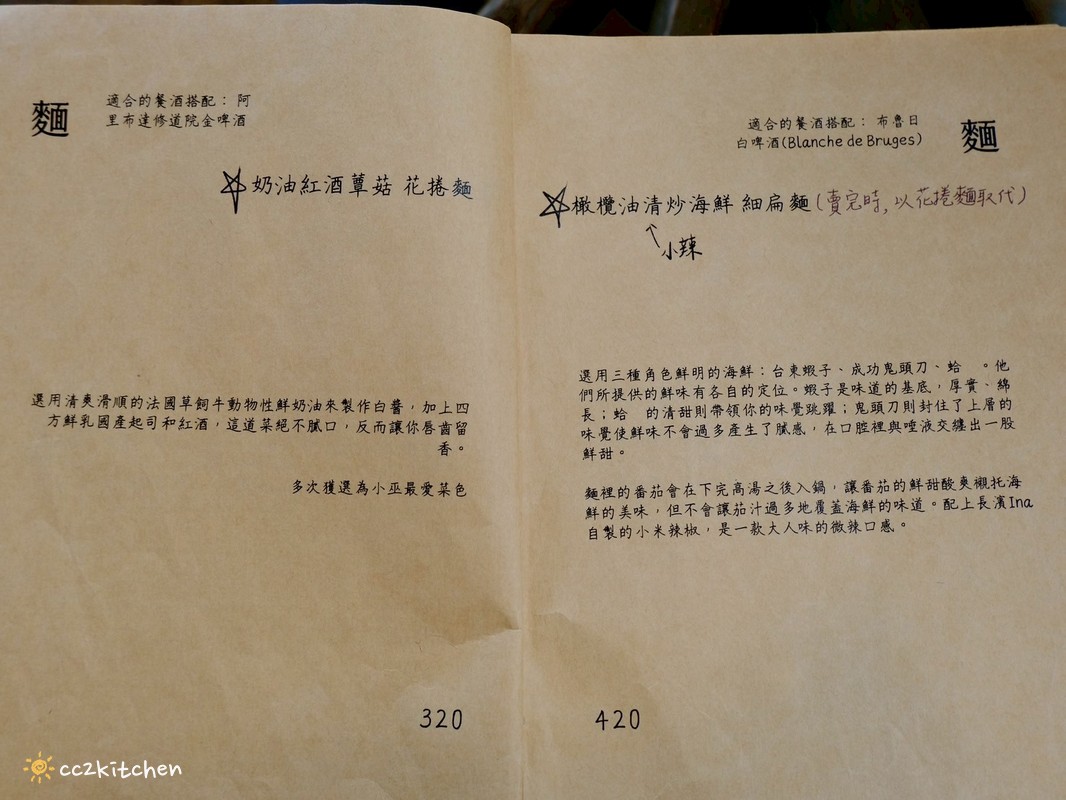 麵
適合的餐酒搭配： 阿
里布達修道院金啤酒
奶油紅酒蕈菇 花捲麵
選用清爽滑順的法國草飼牛動物性鮮奶油來製作白醬，加上四
方鮮乳國產起司和紅酒，這道菜絕不膩口，反而讓你唇齒留
香。
多次獲選為小巫最愛菜色
320
適合的餐酒搭配： 布魯日
白啤酒(Blanche de Bruges)
麵
橄欖油清炒海鮮 細扁麵(賣完時,以花捲麵取代)
小辣
選用三種角色鮮明的海鮮：台東蝦子、成功鬼頭刀、蛤　。他
們所提供的鮮味有各自的定位。蝦子是味道的基底，厚實、綿
長；蛤　的清甜則帶領你的味覺跳躍；鬼頭刀則封住了上層的
味覺使鮮味不會過多產生了膩感，在口腔裡與唾液交纏出一股
鮮甜。
麵裡的番茄會在下完高湯之後入鍋，讓番茄的鮮甜酸爽襯托海
鮮的美味，但不會讓茄汁過多地覆蓋海鮮的味道。配上長濱Ina
自製的小米辣椒，是一款大人味的微辣口感。
420
cc2kitchen